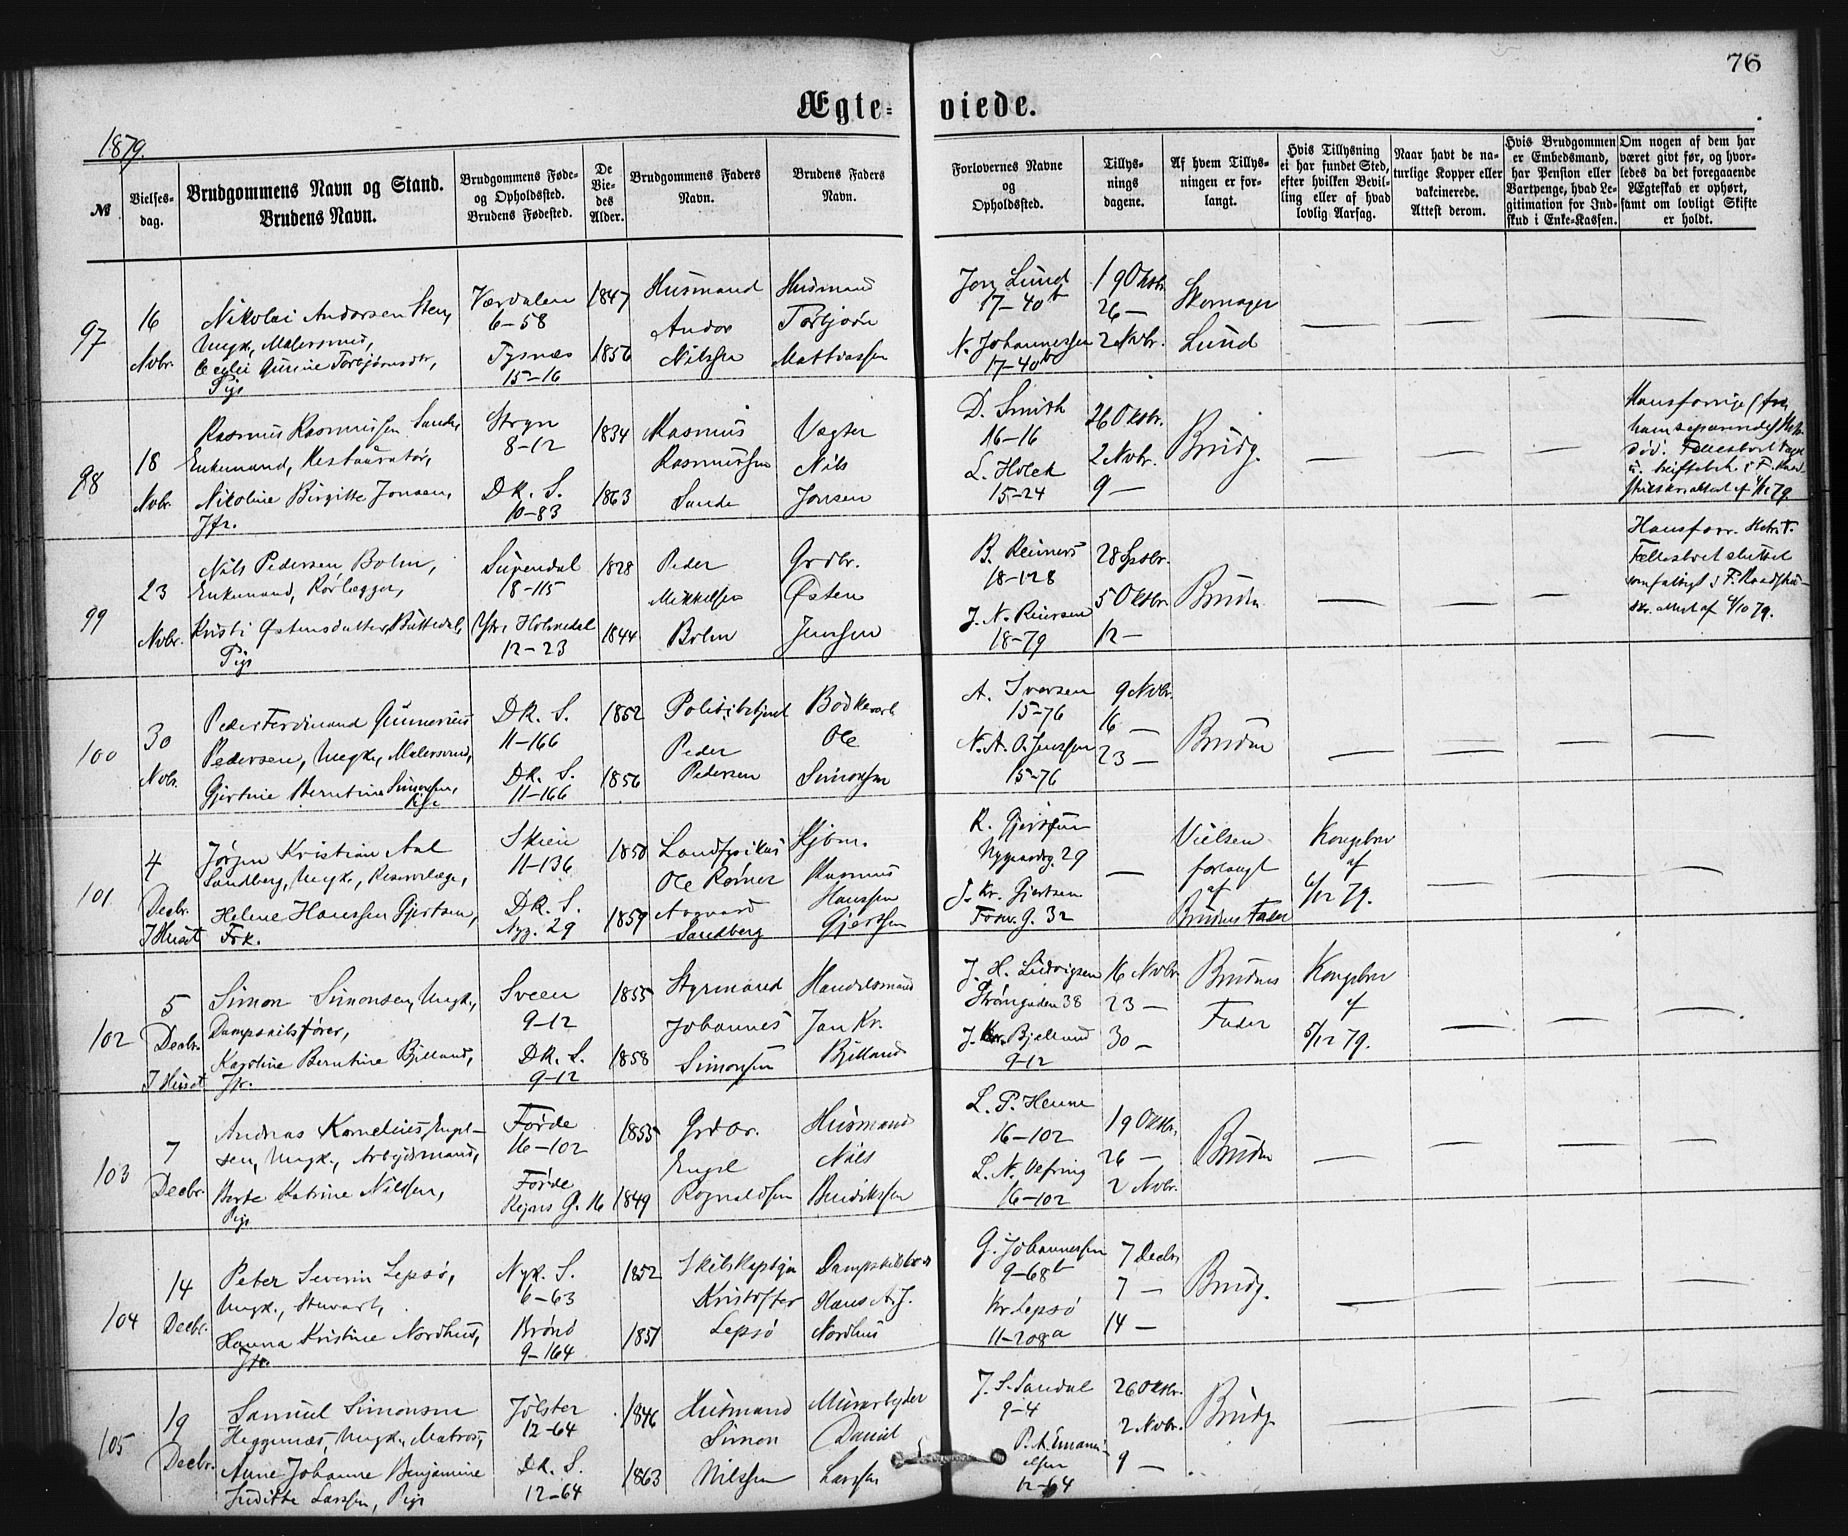 76
Ægte= viede.
1879.
№
Vielses-
dag.
Brudgommens Navn og Stand.
Brudens Navn.
Brudgommens Føde-
og Opholdssted.
Brudens Fødested.
De
Vie-
des
Alder.
Brudgommens Faders
Navn.
Brudens Faders
Navn.
Forlovernes Navne
og
Opholdssted.
Tillys-
nings
dagene.
Af hvem Tillys-
ningen er for-
langt.
Hvis Tillysning
ei har fundet Sted,
efter hvilken Bevil-
ling eller af hvad
lovlig Aarsag.
Naar havt de na-
turlige Kopper eller
vakcinerede.
Attest derom.
Hvis Brudgommen
er Embedsmand,
har Pension eller
Vartpenge, hvad Le-
gitimation for Ind-
skud i Enke-Kassen.
Om nogen af dem har
været givt før, og hvor-
ledes da det foregaaende
Ægteskab er ophørt,
samt om lovligt Skifte
er holdt.
97
16
Novbr.
Nikolai Andorsen Sten,
Ungk., Malersvend,
Gurine Torbjørnsdtr,
Pige
Værdalen
6-58
Tysnæs
15-16
1847
1856
Husmand
Andor
Nilssen
Husmand
Torbjørn
Mattiassen
Jon Lund
17-40b
N. Johannessen
17-40b
19 Oktbr.
26 —
2 Novbr.
Skomager
Lund
98
18
Novbr.
Rasmus Rasmussen Sande,
Enkemand, Restauratør,
Nikoline Birgitte Jonsen,
Jfr.
Stryn
8-12
DK. S.
10-83
1834
1863
Rasmus
Rasmussen
Sande
Vægter
Nils
Jonsen
D. Smith
16-16
L. Holck
15-24
26 Oktbr.
2 Novbr.
9 —
Brudg.
Hans forrige (fra
ham separerede) Hstr.
død. Fællesboet
79.
99
23
Novbr.
Nils Pedersen Bolm,
Enkemand, Rørlægger,
Kristi Østensdatter
Pige
Surendal
18-115
Ytr. Holmedal
12-23
1828
1844
Peder
Mikkelsen
Bolm
Grdbr.
Østen
Jensen
B. Reimers
18-128
J. N. Reiersen
18-79
28 Septbr.
5 Oktbr.
12 —
Bruden
Hans forr. Hstr. †.
Fællesboet sluttet
4/10 79.
100
30
Novbr.
Peder Ferdinand Gunnerius
Pedersen, Ungk., Malersvend,
Gjertine Berntine Simonsen,
Pige
DK. S.
11-166
DK. S.
11-166
1852
1856
Politibetjent
Peder
Pedersen
Bødkersv.
Ole
Simonsen
A. Iversen
15-76
N. A. O. Jenssen
15-76
9 Novbr.
16 —
23 —
Bruden
101
4
Decbr.
I Huset
Jørgen Kristian Aal
Sandberg, Ungk., Reservelæge,
Helene Hanssen Gjertsen,
Frk.
Skien
11-136
DK. S.
Nyg. 29
1850
1859
Landfysikus
Ole Rømer
Aagaard
Sandberg
Kjbm.
Rasmus
Hanssen
Gjertsen
R. Gjertsen
Nygaardsg. 29
J. Kr. Gjertsen
Fosw. G. 32
Vielsen
forlangt
af
Brudens Fader
Kongebrev
af
6/12 79.
102
5
Decbr.
I Huset
Simon Simonsen, Ungk.,
Dampskibsfører,
Karoline Berntine Bjelland,
Jfr.
Sveen
9-12
DK. S.
9-12
1855
1858
Styrmand
Johannes
Simonsen
Handelsmand
Jan Kr.
Bjelland
J. H. Ludvigsen
Strangaden 38
J. Kr. Bjelland
9-12
16 Novbr.
23 —
30 —
Brudens
Fader
Kongebrev
af
5/12 79.
103
7
Decbr.
Andreas Kornelius Engel-
sen, Ungk., Arbejdsmand,
Berte Katrine Nilssen,
Pige
Førde
16-102
Førde
G. 16
1855
1849
Grdbr.
Engel
Rognaldsen
Husmand
Nils
Bendikssen
L. P. Henne
16-102
L. N. Vefring
16-102
19 Oktbr.
26 —
2 Novbr.
Bruden
104
14
Decbr.
Peter Severin Lepsø,
Ungk., Stuvart,
Hanna Kristine Nordhus,
Jfr.
Nyk. S.
6-63
Brønö
9-164
1852
1857
Kristoffer
Lepsø
Hans A. J.
Nordhus
G. Johannessen
9-68b
Kr Lepsø
11-208a
7 Decbr
7 —
14 —
Brudg.
105
19
Decbr.
Samuel Simonsen
Heggenæs, Ungk., Matros,
Anne Johanne Benjamine
Juditte Larssen, Pige
Jølster
12-64
DK. S.
12-64
1846
1863
Husmand
Simon
Nilssen
Murarbejder
David
Larssen
J. S. Sandal
9-4
P. A. Emanu-
elsen
12-64
26 Oktbr.
2 Novbr.
9 —
Brudg.